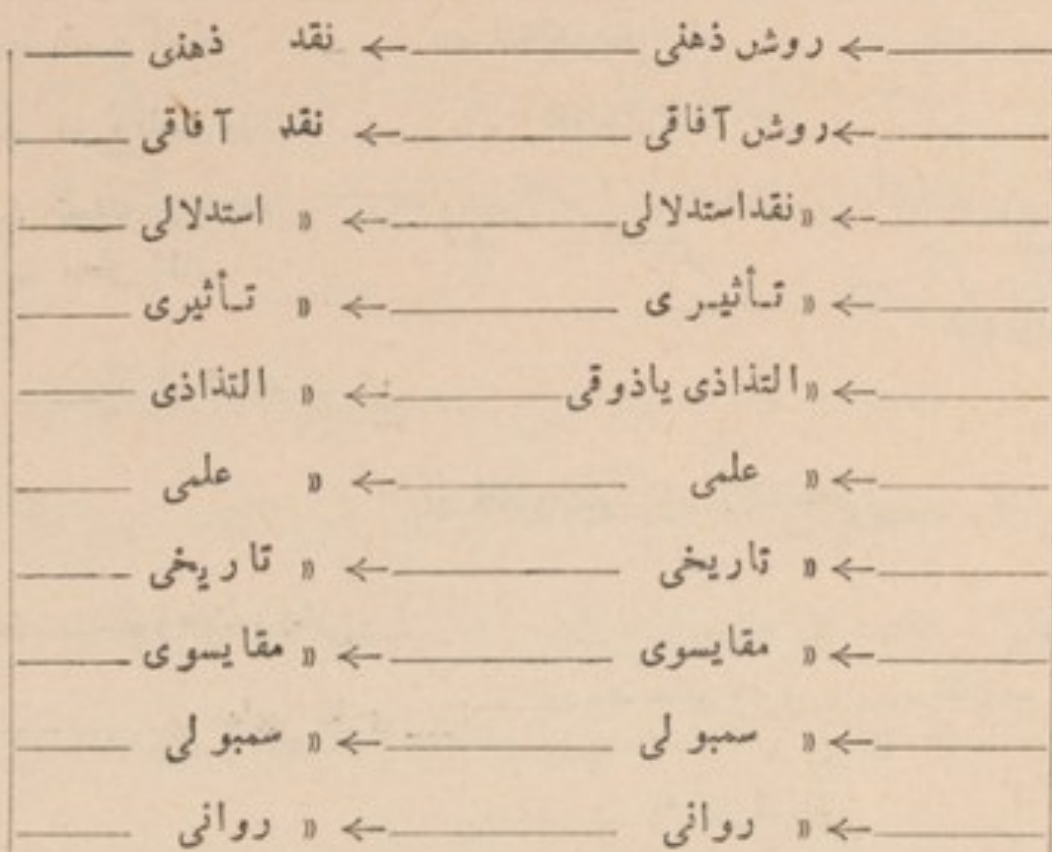 روش ذهنی ← نقد ذهنی
روش آفاقی ← نقد آفاقی
« نقد استدلالی ← « استدلالی
« تأثیری ← « تأثیری
« التذاذی یا ذوقی ← « التذاذی
« علمی ← « علمی
« تاریخی ← « تاریخی
« مقایسوی ← « مقایسوی
« سمبولی ← « سمبولی
« روانی ← « روانی